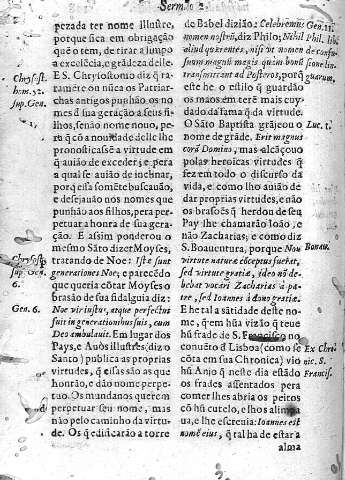 Sermão 2.
pezada ter nome Illustre,
porque fica em obrigação
que o tem, de tirar a limpo
a excelẽcia, e grãdeza delle.
E S. Chrysostomo diz q̃ ra-
ramẽte ou nũca os Patriar-
chas antigos punhão os no
mes d sua geração a seus fi-
lhos, senão nome nouo, pe-
ra q̃ cõ a nouidade delle lhe
pronosticasse a virtude em
q̃ auião de exceder, e pera
a qual se auião de inclinar,
porq̃ essa somẽte buscauão,
e desejauão nos nomes que
punhão aos filhos, pera per-
petuar a honra de sua gera-
ção. E assim ponderou o
mesmo Sãto dizer Moyses,
tratando de Noe: Istæ sunt
generationes Noe; e parecẽdo
que queria cõtar Moyses o
brasão de sua fidalguia diz:
Noe vir iustus, atque perfectus
fuit in generationibus suis, cum
Deo ambulauit. Em lugar dos
Pays, e Auòs Illustres (diz o
Santo) publica as proprias
virtudes, q̃ essas são as que
hontão, e dão nome perpe-
tuo. Os mundanos querem
perpetuar seu nome, mas
não pelo caminho da virtu-
de. Os q̃ edificarão a torre
Chrysost.
hom. 52.
sup. Gen.
Chrysost.
sup. Gen.
6.
Gen. 6.
de Babel dizião: Celebremus
nomen nostrũ, diz Philo; Nihil
aliud quærentes, nisi vt nomen
suum magnũ megis quim bonũ
transmittant ad Posteros, porq̃
este he o estilo q̃ guardão
os maos em terẽ mais cuy-
dado da fama q̃ da virtude.
O Sãto Baptista grãjeou o
nome de grãde. Erit magnus
corã Domino, mas alcãçou o
polas heroicas virtudes q̃
fez em todo o discurso da
vida, e como lhe auião de
dar proprias virtudes, e não
os brasões q̃ herdou de seu
Pay lhe chamarão Ioão, e
não Zacharias; e como diz
S. Boauentura, porque Non
virtute naturæ cõceptus fuerat,
sed virtute gratiæ, ideo nõ de-
bebat vocari Zacharias à pa-
tre, sed Ioannes à dono gratiæ.
E he tal a sãtidade deste no-
me, q̃ em hũa vizão q̃ teue
hũ frade de S. Francisco no
conuẽto d Lisboa (como se
cõta em sua Chronica) vio
hũ Anjo q̃ neste dia estãdo
os frades assentados pera
comer lhes abria os peitos
cõ hũ cutelo, e lhos alimpa
ua, e lhe escreuia: Ioannes est
nomẽ eius, q̃ tal ha de estar a
alma
Gen. 11.
Phil. lib.
de confu-
sione lin-
guarum.
Luc. 1.
Bonau.
Ex Chro
nic. S.
Francisc.